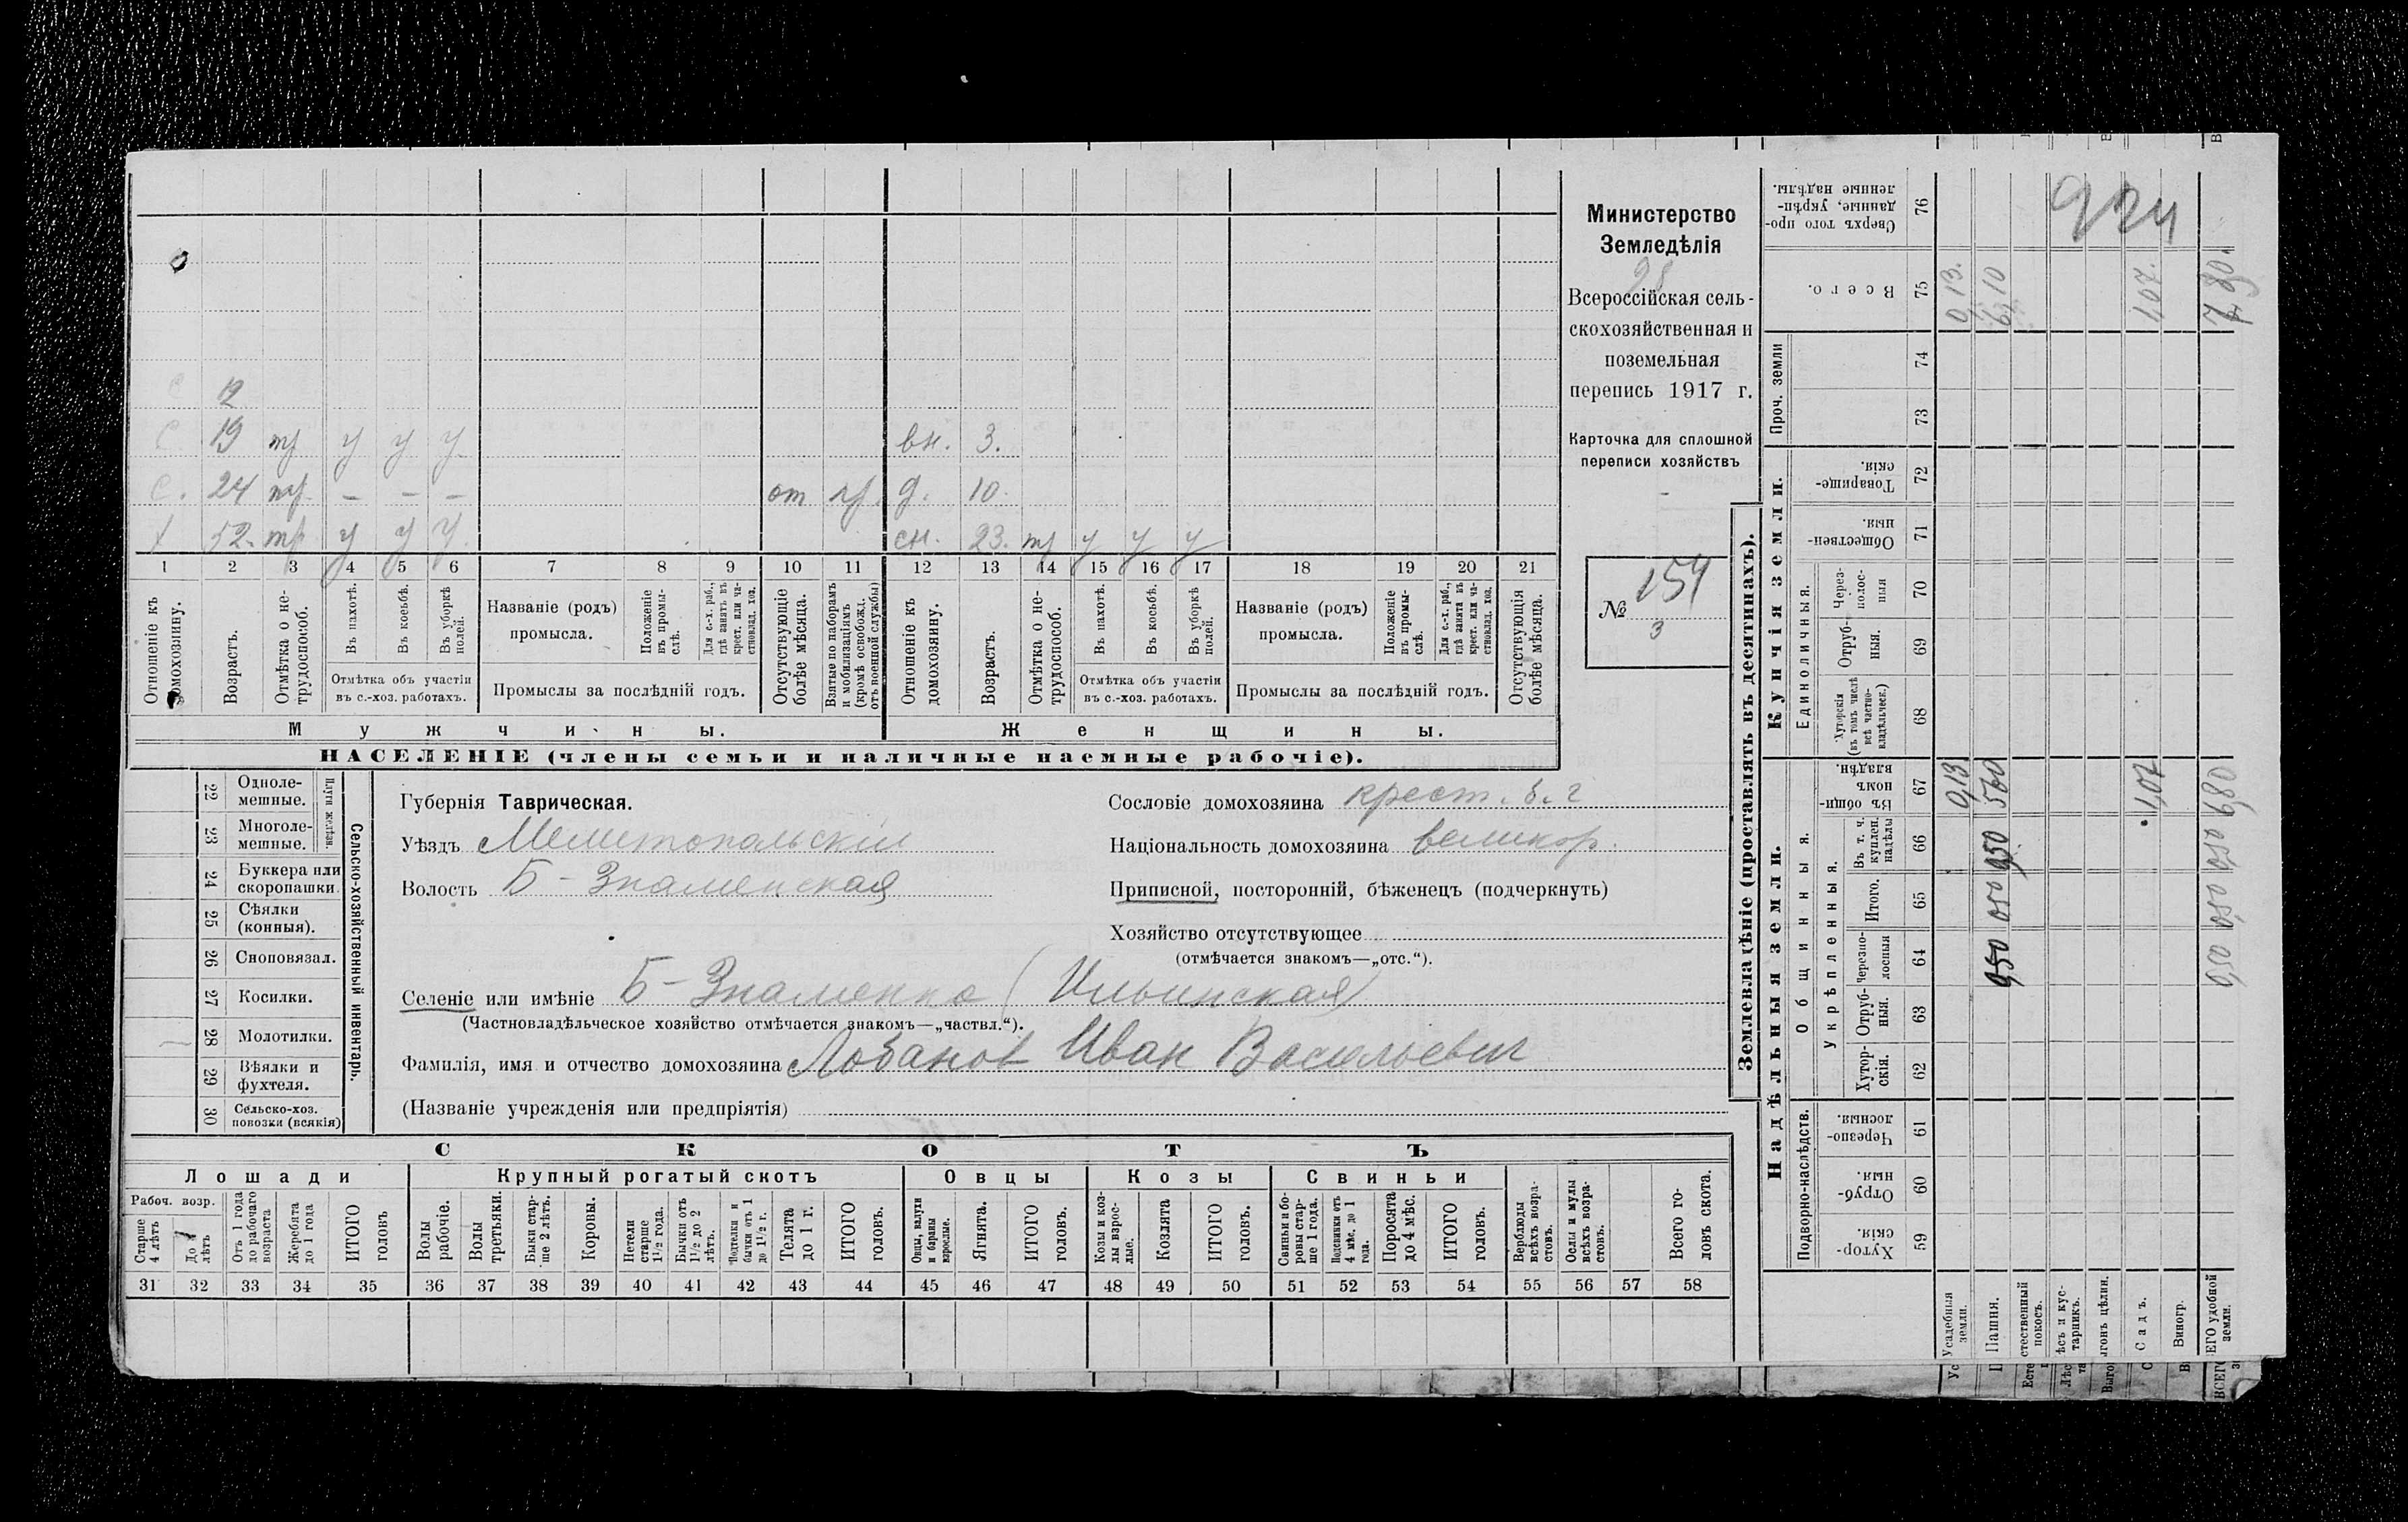 Министерство
Земледѣлія
28
Всероссійская сель-
скохозяйственная и
поземельная
перепись 1917 г.
Карточка для сплошной
переписи хозяйствъ
№ 154
3
с 12
с 19 тр у у у вн. 3.
с. 24 тр. – – – от д. 10.
х 52. тр у у у. сн. 23. тр у у у
1 2 3 4 5 6 7 8 9 10 11 12 13 14 15 16 17 18 19 20 21
Отношеніе къ домохозяину.
Возрастъ.
Отмѣтка о не-трудоспособ.
Въ пахотѣ.
Въ косьбѣ.
Въ уборкѣ полей.
Отмѣтка объ участіи
въ с.-хоз. работахъ.
Названіе (родъ)
промысла.
Положеніе въ промы-слѣ.
Для с.-х. раб., гдѣ занятъ въ крест. или ча-стновлад. хоз.
Промыслы за послѣдній годъ.
Отсутствующіе болѣе мѣсяца.
Взятые по наборамъ и мобилизаціямъ (кромѣ освобожд. отъ военной службы)
Отношеніе къ домохозяину.
Возрастъ.
Отмѣтка о не-трудоспособ.
Въ пахотѣ.
Въ косьбѣ.
Въ уборкѣ полей.
Отмѣтка объ участіи
въ с.-хоз. работахъ.
Названіе (родъ)
промысла.
Положеніе въ промы-слѣ.
Для с.-х. раб., гдѣ занята въ крест. или ча-стновлад. хоз.
Промыслы за послѣдній годъ.
Отсутствующія болѣе мѣсяца.
Мужчины. Женщины.
НАСЕЛЕНІЕ (члены семьи и наличные наемные рабочіе).
Сельско-хозяйственный инвентарь.
Плуги желѣзн.
22 Одноле-мешные.
23 Многоле-мешные.
24 Буккера или скоропашки.
25 Сѣялки (конныя).
26 Сноповязал.
27 Косилки.
28 Молотилки.
29 Вѣялки и фухтеля.
30 Сельско-хоз. повозки (всякія)
Губернія Таврическая.
Уѣздъ Мелитопольскій
Волость Б-Знаменская
Сословіе домохозяина крест. б. г
Національность домохозяина великор.
Приписной, посторонній, бѣженецъ (подчеркнуть)
Хозяйство отсутствующее
(отмѣчается знакомъ—„отс.“).
Селеніе или имѣніе Б-Знаменка (Ильинская)
(Частновладѣльческое хозяйство отмѣчается знакомъ—„частвл.“).
Фамилія, имя и отчество домохозяина Лобанов Иван Васильевич
(Названіе учрежденія или предпріятія)
СКОТЪ
Лошади Крупный рогатый скотъ Овцы Козы Свиньи
Рабоч. возр.
Старше 4 лѣтъ
До 4 лѣтъ
Отъ 1 года до рабочаго возраста
Жеребята до 1 года
ИТОГО головъ
Волы рабочіе.
Волы третьяки.
Быки стар-ше 2 лѣтъ.
Коровы.
Нетели старше 1½ года.
Бычки отъ 1½ до 2 лѣтъ.
Подтелки и бычки отъ 1 до 1½ г.
Телята до 1 г.
ИТОГО головъ.
Овцы, валухи и бараны взрослые.
Ягнята.
ИТОГО головъ.
Козы и коз-лы взрос-лые.
Козлята
ИТОГО головъ.
Свиньи и бо-ровы стар-ше 1 года.
Подсвинки отъ 4 мѣс. до 1 года.
Поросята до 4 мѣс.
ИТОГО головъ.
Верблюды всѣхъ возра-стовъ.
Ослы и мулы всѣхъ возра-стовъ.
Всего го-ловъ скота.
31 32 33 34 35 36 37 38 39 40 41 42 43 44 45 46 47 48 49 50 51 52 53 54 55 56 57 58
Землевладѣніе (проставлять въ десятинахъ).
Надѣльныя земли.
Купчія земли.
Проч. земли
Подворно-наслѣдств.
Общинныя.
Укрѣпленныя.
Единоличныя.
59 Хутор-скія.
60 Отруб-ныя.
61 Черезпо-лосныя.
62 Хутор-скія.
63 Отруб-ныя.
64 Черезпо-лосныя
65 Итого.
66 Въ т. ч. куплен. надѣлы
67 Въ общин-номъ владѣн.
68 Хуторскія (въ томъ числѣ всѣ частно-владѣльческ.)
69 Отруб-ныя.
70 Через-полос-ныя
71 Обществен-ныя.
72 Товарище-скія.
73
74
75 Всего.
76 Сверхъ того про-данные, укрѣп-ленные надѣлы.
Усадебныя земли. 0,13 0,13.
Пашня. 0,50 0,50 0,50 5,60 6,10
Естественный покосъ.
Лѣсъ и кус-тарникъ.
Выгонъ цѣлин.
Садъ. 1,07 1,07.
Виногр.
ВСЕГО удобной земли. 0,50 0,50 0,50 6,80 7,30